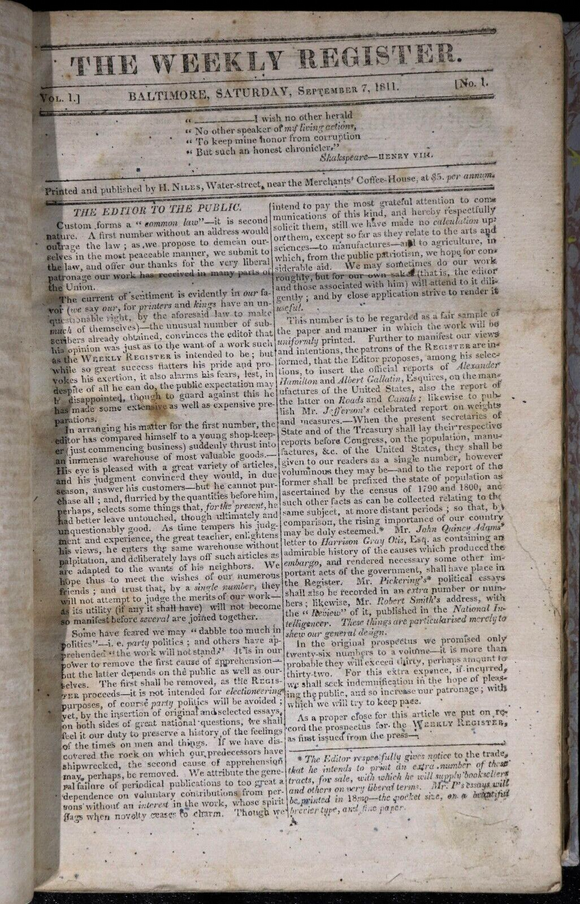 THE WEEKLY REGISTER.
VOL. 1.]
BALTIMORE, SATURDAY, SEPTEMBER 7, 1811.
[NO. 1.
"————I wish no other herald
"No other speaker of my living actions,
"To keep mine honor from corruption
"But such an honest chronicler."
Shakspeare—HENRY VIII.
Printed and published by H. NILES, Water-street, near the Merchants' Coffee-House, at $5. per annum.
THE EDITOR TO THE PUBLIC.
Custom forms a "common law"—it is second
nature. A first number without an address would
outrage the law; as we propose to demean our-
selves in the most peaceable manner, we submit to
the law, and offer our thanks for the very liberal
patronage our work has received in many parts of
the Union.
The current of sentiment is evidently in our fa-
vor (we say our, for printers and kings have an un-
questionable right, by the aforesaid law to make
much of themselves)—the unusual number of sub-
scribers already obtained, convinces the editor that
his opinion was just as to the want of a work such
as the WEEKLY REGISTER is intended to be; but
while so great success flatters his pride and pro-
vokes his exertion, it also alarms his fears, lest, in
despite of all he can do, the public expectation may
be disappointed, though to guard against this he
has made some extensive as well as expensive pre-
parations.
In arranging his matter for the first number, the
editor has compared himself to a young shop-keep-
er (just commencing business) suddenly thrust into
an immense warehouse of most valuable goods.—
His eye is pleased with a great variety of articles,
and his judgment convinced they would, in due
season, answer his customers—but he cannot pur-
chase all; and, flurried by the quantities before him,
perhaps, selects some things that, for the present, he
had better leave untouched, though ultimately and
unquestionably good. As time tempers his judg-
ment and experience, the great teacher, enlightens
his views, he enters the same warehouse without
palpitation, and deliberately lays off such articles as
are adapted to the wants of his neighbors. We
hope thus to meet the wishes of our numerous
friends; and trust that, by a single number, they
will not attempt to judge the merits of our work—
as its utility (if any it shall have) will not become
so manifest before several are joined together.
Some have feared we may "dabble too much in
politics"—i. e. party politics; and others have ap-
prehended "the work will not stand." It is in our
power to remove the first cause of apprehension—
but the latter depends on the public as well as our-
selves. The first shall be removed, as the REGIS-
TER proceeds—it is not intended for electioneering
purposes, of course party politics will be avoided;
yet, by the insertion of original and selected essays,
on both sides of great national questions, we shall
feel it our duty to preserve a history of the feelings
of the times on men and things. If we have dis-
covered the rock on which our predecessors have
shipwrecked, the second cause of apprehension
may, perhaps, be removed. We attribute the gene-
ral failure of periodical publications to too great a
dependence on voluntary contributions from per-
sons without an interest in the work, whose spirit
flags when novelty ceases to charm. Though we
intend to pay the most grateful attention to com-
munications of this kind, and hereby respectfully
solicit them, still we have made no calculation up-
on them, except so far as they relate to the arts and
sciences—to manufactures—and to agriculture, in
which, from the public patriotism, we hope for con-
siderable aid. We may sometimes do our work
roughly, but for our own sakes (that is, the editor
and those associated with him) will attend to it dili-
gently; and by close application strive to render it
useful.
This number is to be regarded as a fair sample of
the paper and manner in which the work will be
uniformly printed. Further to manifest our views
and intentions, the patrons of the REGISTER are in-
formed, that the Editor proposes, among his selec-
tions, to insert the official reports of Alexander
Hamilton and Albert Gallatin, Esquires, on the man-
ufactures of the United States, also the report of
the latter on Roads and Canals; likewise to pub-
lish Mr. Jefferson's celebrated report on weights
and measures.—When the present secretaries of
State and of the Treasury shall lay their respective
reports before Congress, on the population, manu-
factures, &c. of the United States, they shall be
given to our readers as a single number, however
voluminous they may be—and to the report of the
former shall be prefixed the state of population as
ascertained by the census of 1790 and 1800, and
such other facts as can be collected relating to the
same subject, at more distant periods; so that, by
comparison, the rising importance of our country
may be duly esteemed.* Mr. John Quincy Adams'
letter to Harrison Gray Otis, Esq. as containing an
admirable history of the causes which produced the
embargo, and rendered necessary some other im-
portant acts of the government, shall have place in
the Register. Mr. Pickering's* political essays
shall also be recorded in an extra number or num-
bers; likewise, Mr. Robert Smith's address, with
the "Review" of it, published in the National In-
telligencer. These things are particularised merely to
shew our general design.
In the original prospectus we promised only
twenty-six numbers to a volume—it is more than
probable they will exceed thirty, perhaps amount to
thirty-two. For this extra expence, if incurred,
we shall seek indemnification in the hope of pleas-
ing the public, and so increase our patronage; with
which we will try to keep pace.
As a proper close for this article we put on re-
cord the prospectus for the WEEKLY REGISTER,
as first issued from the press—
* The Editor respectfully gives notice to the trade,
that he intends to print an extra number of these
tracts, for sale, with which he will supply booksellers
and others on very liberal terms. Mr. P's essays will
be printed in 18mo—the pocket size, on a beautiful
brevier type, and fine paper.